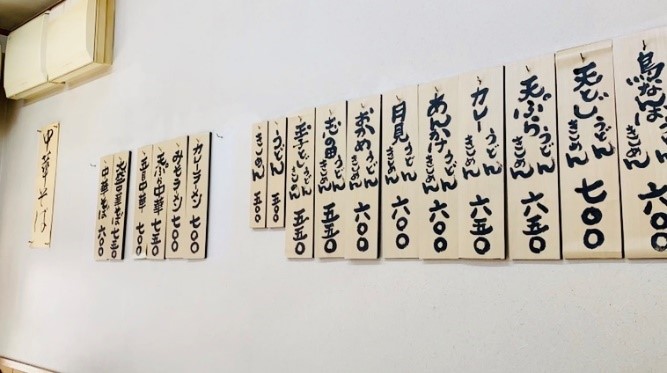 鳥なんば うどん きしめん 六〇〇
天とじ うどん きしめん 七〇〇
天ぷら うどん きしめん 六五〇
カレー うどん きしめん 六〇〇
あんかけ うどん きしめん 六〇〇
月見 うどん きしめん 六〇〇
おかめ うどん きしめん 六〇〇
志の田 うどん きしめん 五五〇
玉子とじ うどん きしめん 五五〇
うどん 五〇〇
きしめん 五〇〇
カレーラーメン 七〇〇
みそラーメン 七〇〇
天ぷら中華 七五〇
五目中華 七〇〇
中華そば 六〇〇
中華そば